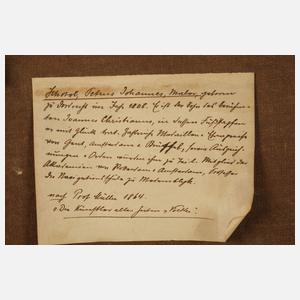 Schotel, Petrus Johannes, Maler, geboren
zu Dordrecht im Jah. 1808. Er ist der Sohn des berühm-
ten Joannes Christianus, in dessen Fußstapfen
er mit Glück trat. Mehrere Medaillen: Ehrenpreise
von Gent, Amsterdam u Brüssel, sowie Auszeich-
nungen u Orden wurden ihm zu Teil. Mitglied der
Akademien von Rotterdam u Amsterdam, Professor
der Navigationsschule zu Medemblyk.
nach Prof. Müller 1864.
"Die Künstler aller Zeiten u Völker".